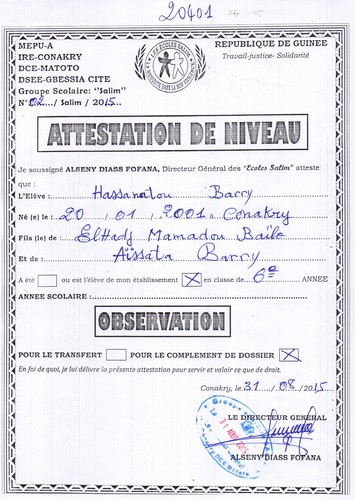 20401
MEPU-A
REPUBLIQUE DE GUINEE
IRE-CONAKRY
Travail-justice- Solidarité
DCE-MATOTO
DSEE-GBESSIA CITE
Groupe Scolaire: "Salim"
N° 02.../ Salim / 2015...
ATTESTATION DE NIVEAU
Je soussigné ALSENY DIASS FOFANA, Directeur Général des "Ecoles Salim" atteste
que :
L'Elève : Hassanatou Barry
Né (e) le : 20 / 01 / 2001 à Conakry
Fils (le) de : ElHadj Mamadou Baïlo
Et de : Aïssata Barry
A été ou est l'élève de mon établissement X en classe de 6e ANNEE
ANNEE SCOLAIRE :
OBSERVATION
POUR LE TRANSFERT POUR LE COMPLEMENT DE DOSSIER X
En foi de quoi, je lui délivre la présente attestation pour servir et valoir ce que de droit.
Conakry, le 31 / 08 / 2015
LE DIRECTEUR GENERAL
ALSENY DIASS FOFANA